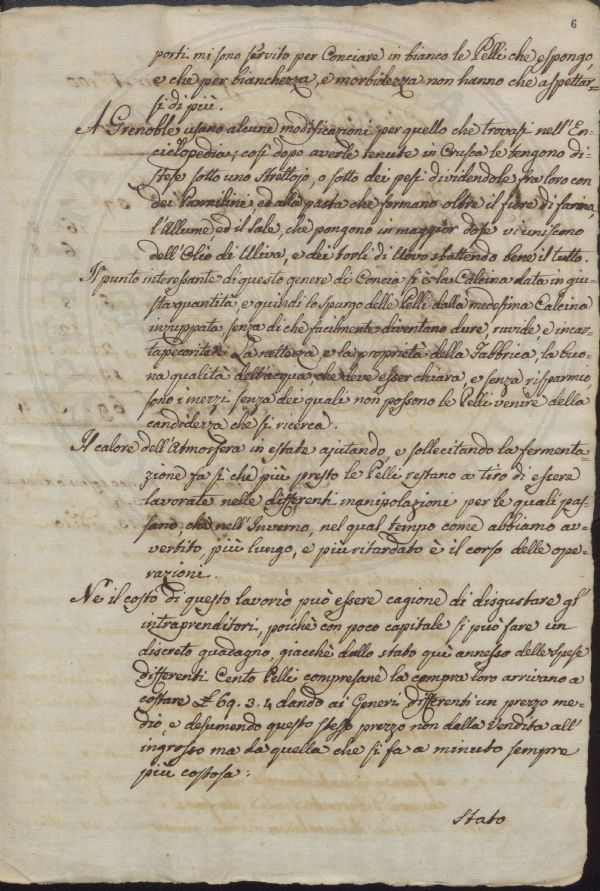 6
porti. mi sono servito per Conciare in bianco le Pelli che espongo,
e che per bianchezza, e morbidezza non hanno che aspettar-
si di più.
A Grenoble usano alcune modificazioni per quello che trovasi nell'En-
ciclopedia; così dopo averle tenute in Crusca le tengono di-
stese sotto uno Strettojo, o sotto dei pesi dividendole fra loro con
dei Pannilini ed alla pasta che formano oltre il fiore di farina,
l'Allume, ed il Sale, che pongono in maggior dose vi uniscono
dell'Olio di Uliva, e dei torli di Uovo sbattendo bene il tutto.
Il punto interessante di questo genere di Concia si è la Calcina data in giu-
sta quantità, e quindi lo spurgo delle Pelli dalla medesima Calcina
inzuppata, senza di che facilmente diventano dure, ruvide, e incar-
tapecorite. La nettezza, e la proprietà della Fabbrica, la buo-
na qualità dell'acqua, che deve esser chiara, e senza risparmio,
sono i mezzi senza dei quali non possono le Pelli venire della
candidezza che si ricerca.
Il calore dell'Atmosfera in estate ajutando, e sollecitando la fermenta
zione fa sì che più presto le Pelli restano a tiro di essere
lavorate nelle differenti manipolazioni per le quali pas-
sano, che nell'Inverno, nel qual tempo come abbiamo av-
vertito, più lungo, e più ritardato è il corso delle ope-
razioni.
Nè il costo di questo lavorìo può essere cagione di disgustare gl'
intraprenditori, poichè con poco capitale si può fare un
discreto guadagno, giacchè dallo stato quì annesso delle Spese
differenti Cento Pelli compresane la compra loro arrivano a
costare £ 69. 3. 4 dando ai Generi differenti un prezzo me-
dio, e desumendo questo stesso prezzo non dalla vendita all'
ingrosso ma da quella che si fa a minuto sempre
più costosa:
Stato